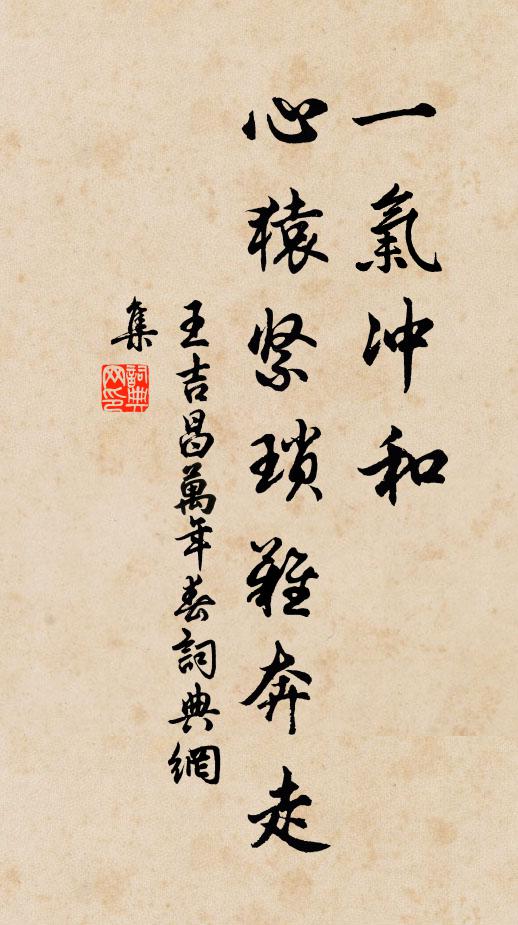 一氣冲和
心猿紧瑣難奔走
王吉昌萬年春詞典網
集
詞典
网印